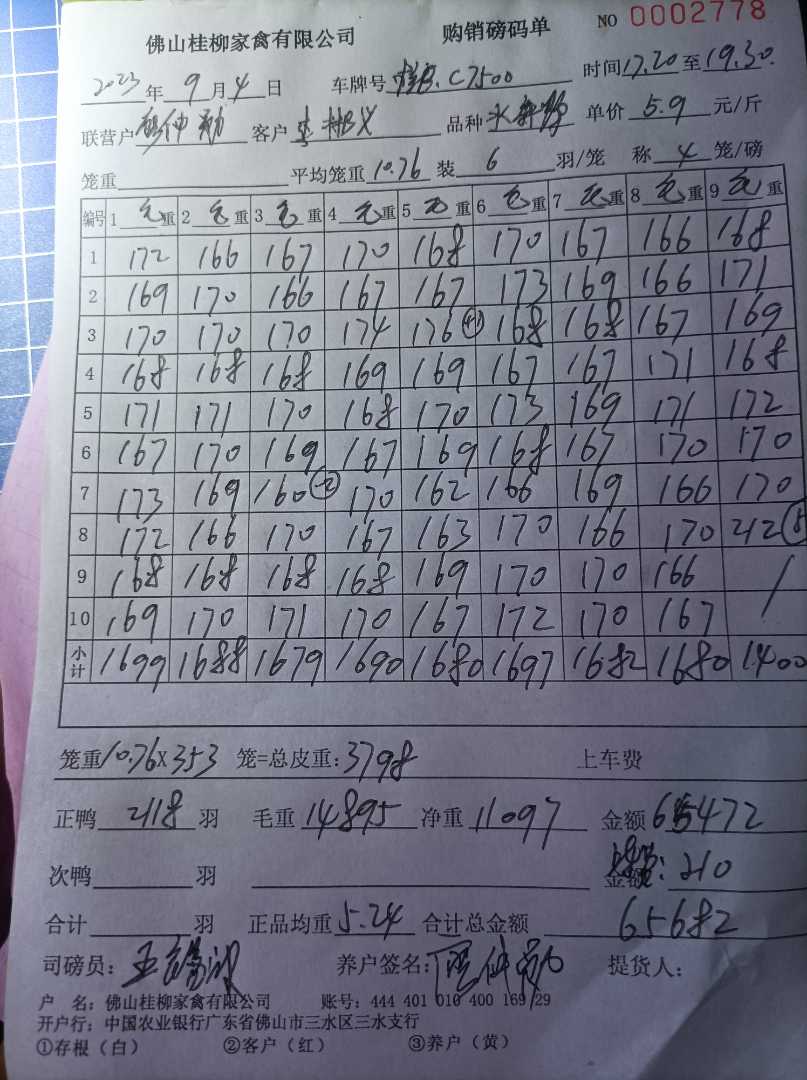 佛山桂柳家禽有限公司 购销磅码单 NO 0002778
2023年9月4日 车牌号 C7500 时间17.20至19.30.
联营户 仲 客户 李 品种 水 单价5.9元/斤
笼重 平均笼重10.76装6羽/笼 称4笼/磅
编号 1毛重 2毛重 3毛重 4毛重 5毛重 6毛重 7毛重 8毛重 9毛重
1 172 166 167 170 168 170 167 166 168
2 169 170 166 167 167 173 169 166 171
3 170 170 170 174 176(+1) 168 168 167 169
4 168 168 168 169 169 167 167 171 168
5 171 171 170 168 170 173 169 171 172
6 167 170 169 167 169 168 167 170 170
7 173 169 160(-2) 170 162 166 169 166 170
8 172 166 170 167 163 170 166 170 212
9 168 168 168 168 169 170 170 166 /
10 169 170 171 170 167 172 170 167
小计 1699 1688 1679 1690 1680 1697 1682 1680 1400
笼重10.76X353 笼=总皮重:3798 上车费
正鸭2118羽 毛重14895净重11097 金额65472
次鸭 羽 金额:210
合计 羽 正品均重5.24合计总金额 65682
司磅员:王 养户签名: 仲 提货人:
户 名:佛山桂柳家禽有限公司 账号:444 401 010 400 169 29
开户行:中国农业银行广东省佛山市三水区三水支行
①存根(白) ②客户(红) ③养户(黄)